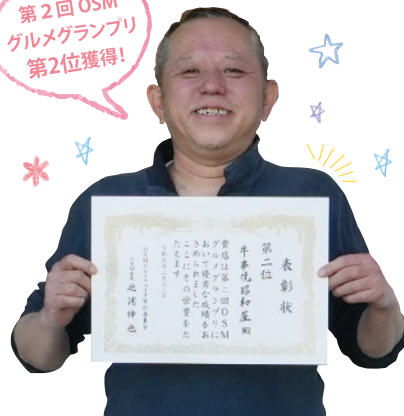 第2回 OSM
グルメグランプリ
第2位獲得!
表彰状
第二位
牛串焼昭和屋 殿
貴店は第二回OSM
グルメグランプリに
おいて優秀な成績をお
さめられました
ここにその栄誉をた
たえます